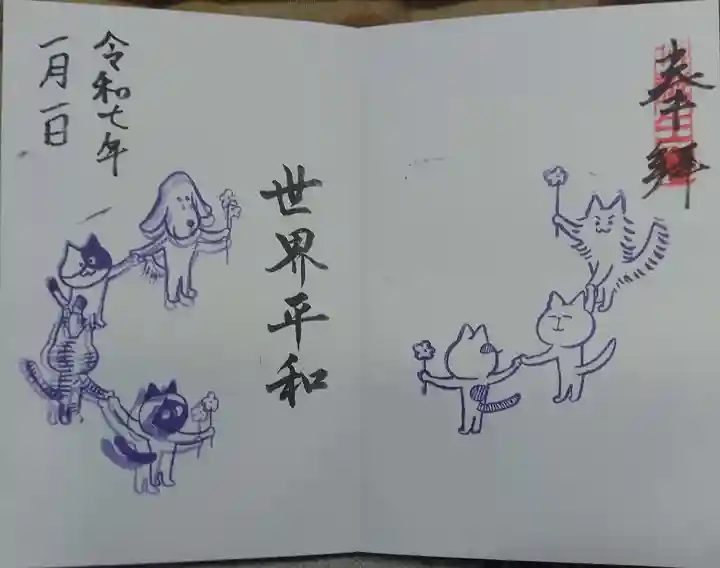 奉拝
世界平和
令和七年
一月一日